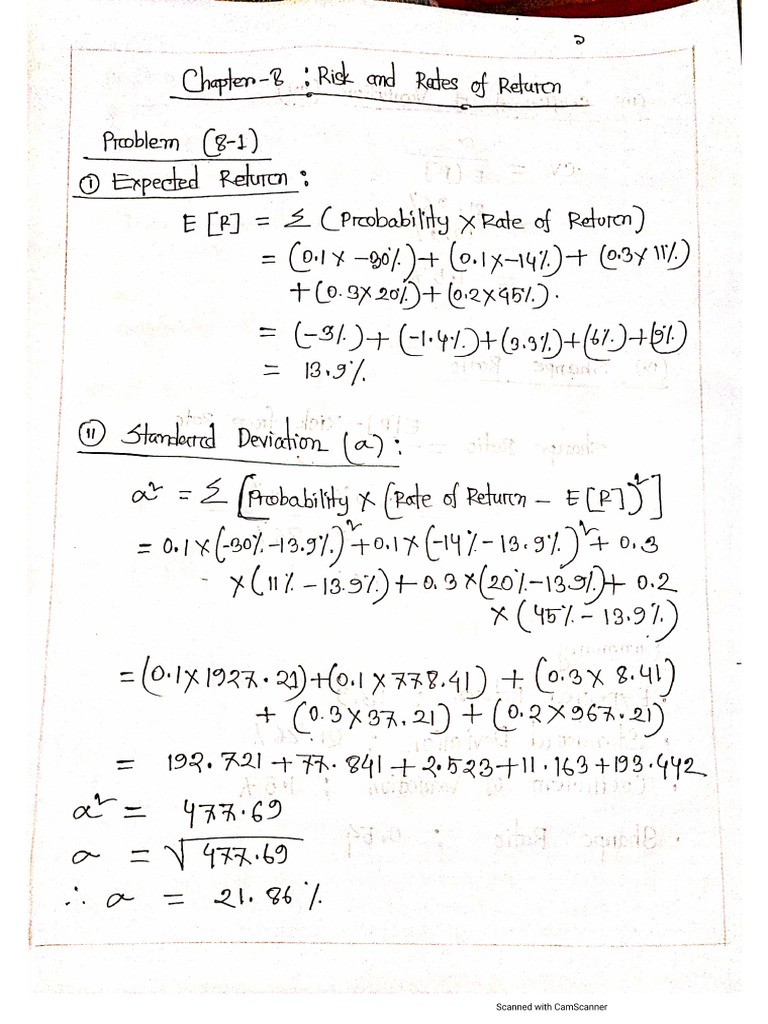 2
Chapter-8 : Risk and Rates of Return
Problem (8-1)
① Expected Return :
E [R] = Σ (Probability × Rate of Return)
= (0.1 × -30%) + (0.1 × -14%) + (0.3 × 11%)
+ (0.3 × 20%) + (0.2 × 45%).
= (-3%) + (-1.4%) + (3.3%) + (6%) + (9%)
= 13.9%
⑪ Standard Deviation (a) :
a² = Σ [Probability × (Rate of Return - E[R])²]
= 0.1 × (-30% - 13.9%)² + 0.1 × (-14% - 13.9%)² + 0.3
× (11% - 13.9%) + 0.3 × (20% - 13.9%) + 0.2
× (45% - 13.9%)
= (0.1 × 1927.21) + (0.1 × 778.41) + (0.3 × 8.41)
+ (0.3 × 37.21) + (0.2 × 967.21)
= 192.721 + 77.841 + 2.523 + 11.163 + 193.442
a² = 477.69
a = √477.69
∴ a = 21.86%
Scanned with CamScanner